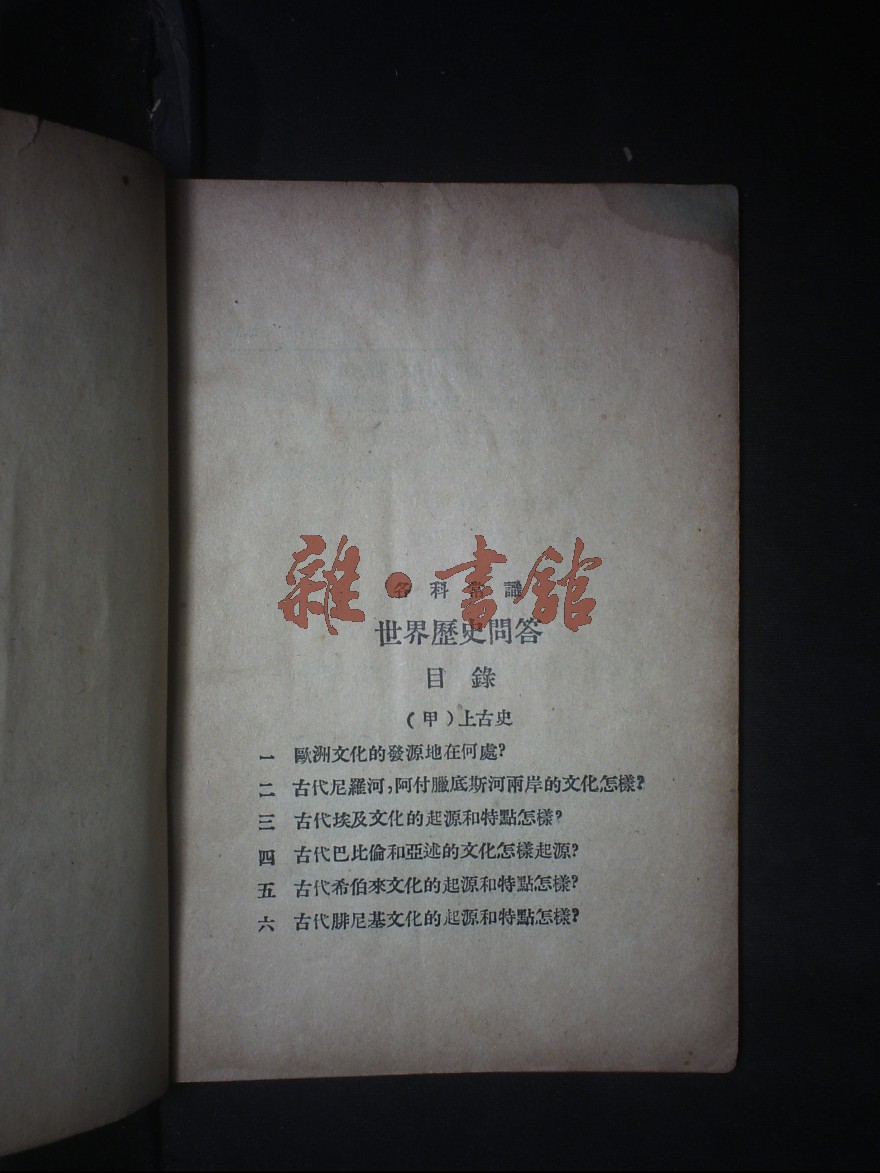 雜·書館
各科常識
世界歷史問答
目錄
(甲)上古史
一 歐洲文化的發源地在何處?
二 古代尼羅河,阿付臘底斯河兩岸的文化怎樣?
三 古代埃及文化的起源和特點怎樣?
四 古代巴比倫和亞述的文化怎樣起源?
五 古代希伯來文化的起源和特點怎樣?
六 古代腓尼基文化的起源和特點怎樣?